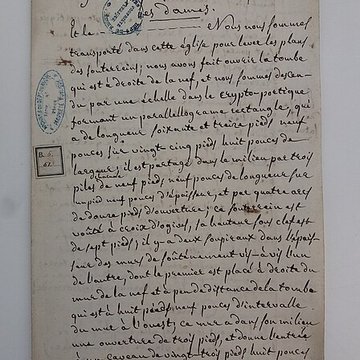 des dames.
Et le             Nous nous sommes
transporté dans cette église pour lever les plans
des souterrains; nous avons fait ouvrir la tombe
qui est à droite de la nef, et nous sommes descen-
du par une échelle dans le crypto-poétique
formant un parallellograme rectangle, qui
a de longueur soixante et treize pieds neuf
pouces sur vingt cinq pieds huit pouces de
largeur; il est partagé dans le milieu par trois
piles de neuf pieds neuf pouces de longueur sur
un pied neuf pouces d'épaisseur, et par quatre arcs
de douze pieds d'ouverture; ce souterrein est
voûté à croix d'ogives, sa hauteur sous clef est
de sept pieds; il y a deux soupiraux dans l'épais-
seur des murs de soutènement vis-à-vis l'un
de l'autre, dont le premier est placé à droite du
mur de la nef et à peu de distance de la tombe
qui est à huit pieds neuf pouces d'intervalle
du mur à l'ouest; ce mur a dans son milieu
une ouverture de trois pieds, et donne l'entrée
à un caveau de vingt-trois pieds huit pouces
B. 5.
62